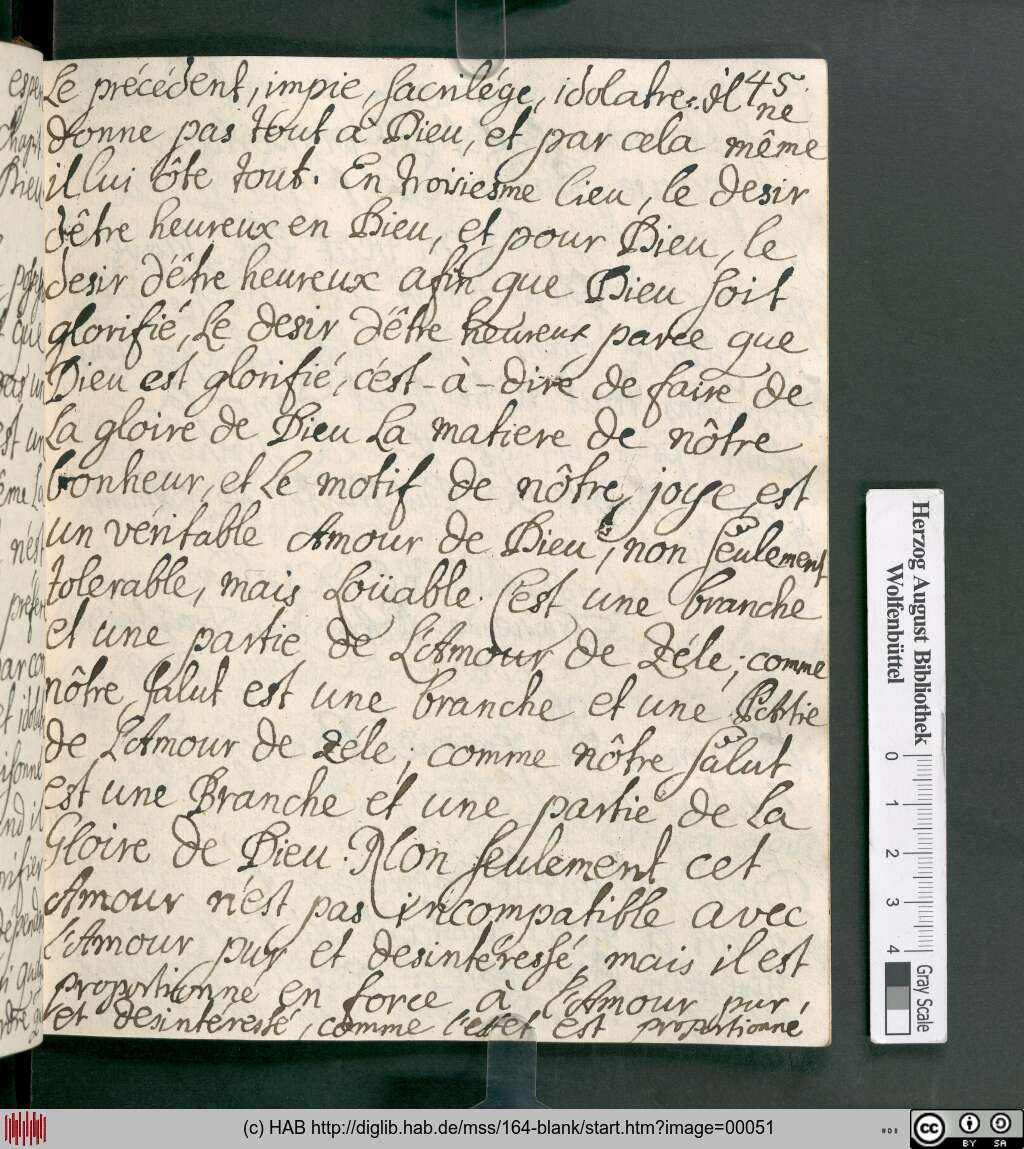 45.
Le précédent, impie, sacrilége, idolatre. Il ne
donne pas tout à Dieu, et par cela même
il lui ôte tout. En troisiesme lieu, le desir
d'être heureux en Dieu, et pour Dieu, le
desir d'être heureux afin que Dieu soit
glorifié, Le desir d'être heureux parce que
Dieu est glorifié, c'est-à-dire de faire de
La gloire de Dieu La matiere de nôtre
bonheur, et Le motif de nôtre joye est
un véritable Amour de Dieu, non seulement
tolerable, mais Loüable. C'est une branche
et une partie de L'Amour de Zéle; comme
nôtre salut est une branche et une Partie
de L'Amour de zéle; comme nôtre salut
est une Branche et une partie de La
Gloire de Dieu. Non seulement cet
Amour n'est pas incompatible avec
l'Amour pur et desintéressé, mais il est
proportionné en force à l'Amour pur,
et desinteressé, comme l'effet est proportionné
Herzog August Bibliothek
Wolfenbüttel
0 1 2 3 4
Gray Scale
(c) HAB http://diglib.hab.de/mss/164-blank/start.htm?image=00051
cc BY SA